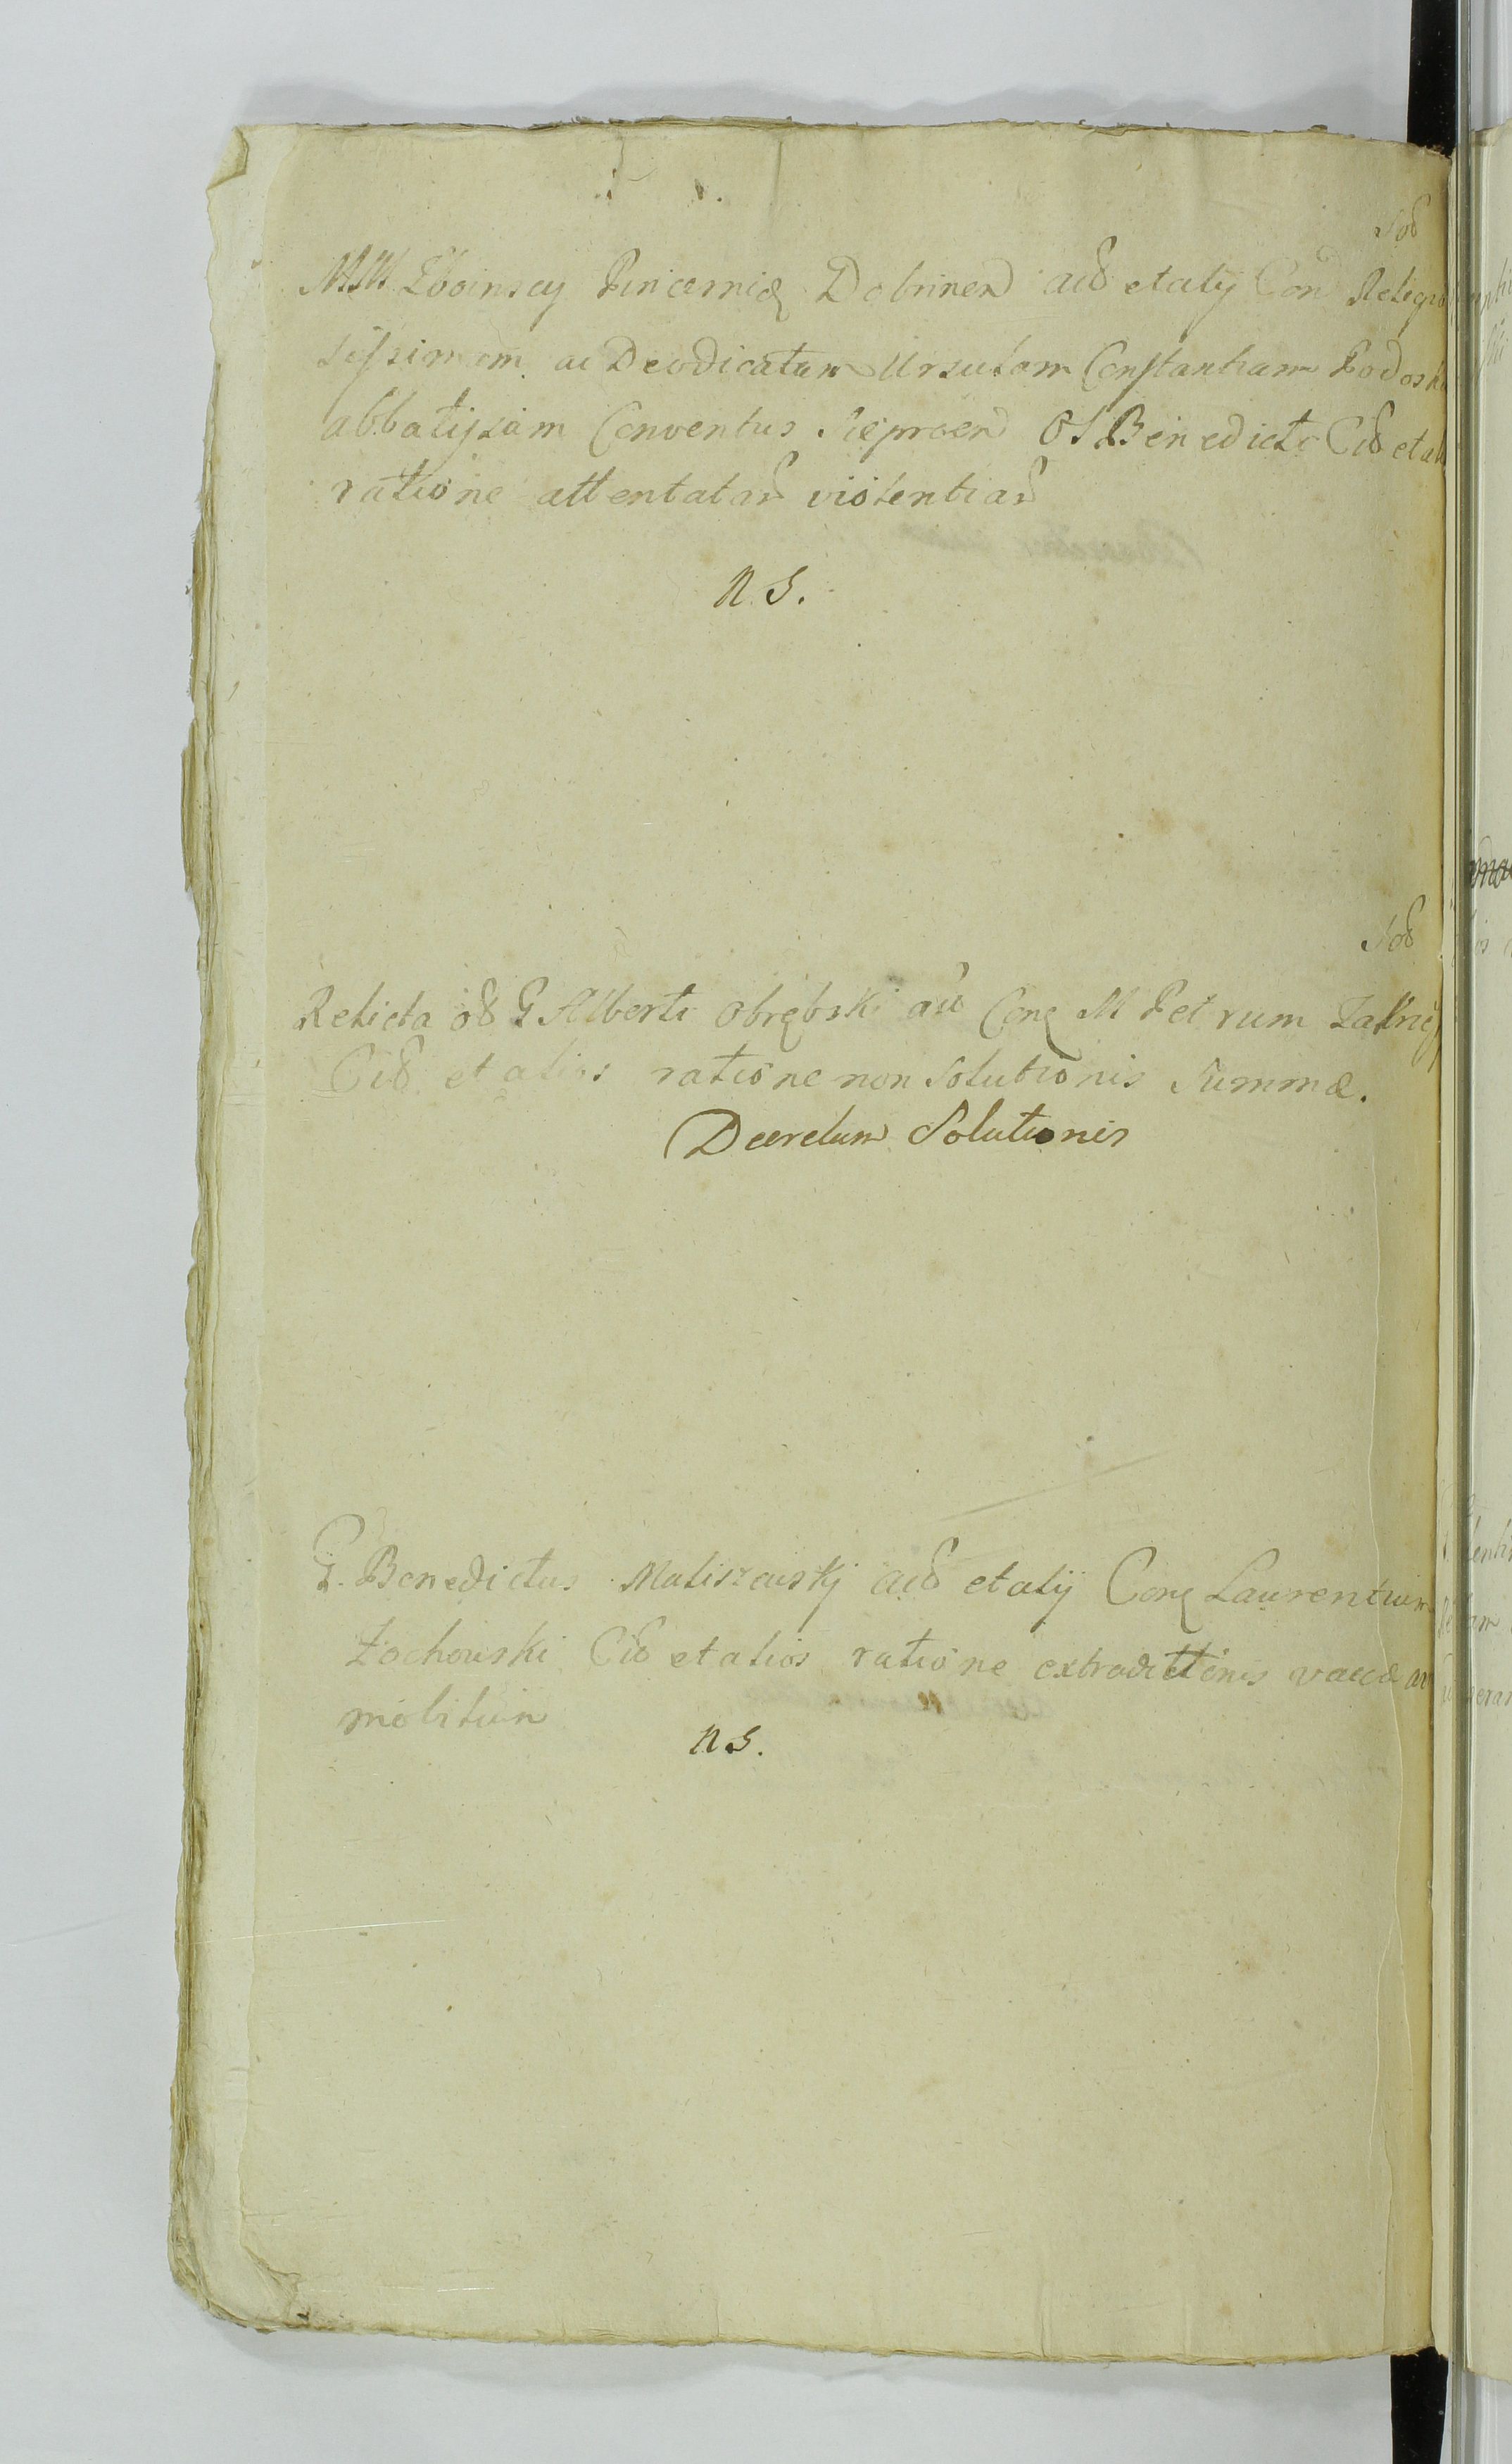 Sod
MM Zboinscy Pincernidę Dobrinen acõ et alij Con Religio
sissimam ac Deodicatam Ursulam Constantiam Podoska
abbatissam Conventus Sieprcen O S Benedicti Citõ et al
ratione attentatar violentiar
N. S.
Sod
Relicta oõ G Alberti Obrębski aũ Conę M Petrum
Citõ et alios ratione non Solutionis Summæ.
Decretum Solutionis
G. Benedictus Maliszewskj acõ et alij Conę Laurentium
Żochowski Citõ et alios ratione extradittionis vaccæ ac
mobilium
N S.